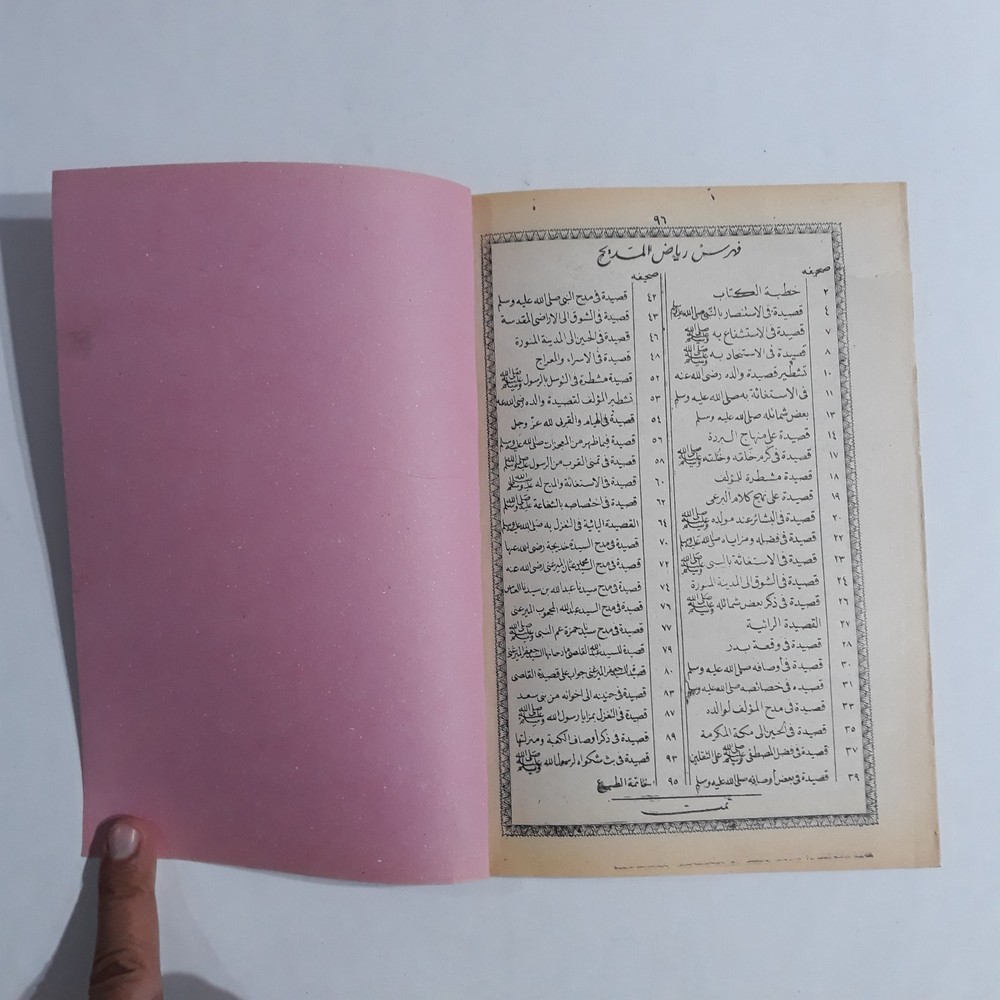 ٩٦
فهرس رياض المديح
صحيفه
٢ خطبة الكتاب
٤ قصيدة في الاستنصار بالنبي صلى الله عليه وسلم
٧ قصيدة في الاستشفاع به ﷺ
٨ قصيدة في الاستنجاد به ﷺ
١٠ تشطير قصيدة والده رضى الله عنه
١١ في الاستغاثة به صلى الله عليه وسلم
١٣ بعض شمائله صلى الله عليه وسلم
١٤ قصيدة على منهاج البردة
١٧ قصيدة في كرم خلقه وخلقه ﷺ
١٨ قصيدة مشطرة للمؤلف
١٩ قصيدة على نهج كلام البرعى
٢٠ قصيدة في البشائر عند مولده ﷺ
٢٢ قصيدة في فضله ومزاياه صلى الله عليه وسلم
٢٣ قصيدة في الاستغاثة بالنبي ﷺ
٢٤ قصيدة في الشوق الى المدينة المنورة
٢٦ قصيدة في ذكر بعض شمائله ﷺ
٢٧ القصيدة الرائية
٢٨ قصيدة في وقعة بدر
٣٠ قصيدة في أوصافه صلى الله عليه وسلم
٣١ قصيده في خصائصه صلى الله عليه وسلم
٣٣ قصيدة في مدح المؤلف لوالده
٣٥ قصيدة في الحنين الى مكة المكرمة
٣٧ قصيدة في فضل المصطفى ﷺ على الثقلين
٣٩ قصيدة في بعض أوصافه صلى الله عليه وسلم
صحيفه
٤٢ قصيدة في مدح النبي صلى الله عليه وسلم
٤٣ قصيدة في الشوق الى الاراضى المقدسة
٤٦ قصيدة في الحنين الى المدينة المنورة
٤٨ قصيدة في الاسراء والمعراج
٥٢ قصيدة مشطرة في التوسل بالرسول ﷺ
٥٣ تشطير المؤلف لقصيدة والده رضى الله عنه
٥٤ قصيدة في الهيام والقرب لله عز وجل
٥٦ قصيدة فيما ظهر من المعجزات صلى الله عليه وسلم
٥٨ قصيدة في تمنى القرب من الرسول ﷺ
٦٠ قصيدة في الاستغاثة والمدح له ﷺ
٦٢ قصيدة في اختصاصه بالشفاعة ﷺ
٦٤ القصيدة اليائية في التغزل به صلى الله عليه وسلم
٧٠ قصيدة في مدح السيدة خديجة رضى الله عنها
٧٢ قصيدة في مدح السيد محمد عثمان الميرغنى رضى الله عنه
٧٤ قصيدة في مدح سيدنا عبد الله بن سيدنا العباس
٧٦ قصيدة في مدح السيد عبد الله المحجوب الميرغنى
٧٧ قصيدة في مدح سيدنا حمزة عم النبي ﷺ
٧٩ قصيدة للسيد عبد الله القاضى مادحا بها السيد جعفر الميرغنى
٨٠ قصيدة للسيد جعفر الميرغنى جواب على قصيدة القاضى
٨٣ قصيدة في حنينه الى اخوانه من بنى سعد
٨٧ قصيدة في التغزل بمزايا رسول الله ﷺ
٨٩ قصيدة في ذكر أوصاف الكعبة ومنزلتها
٩٣ قصيدة في بث شكواه لرسول الله ﷺ
٩٥ خاتمة الطبع
تمت